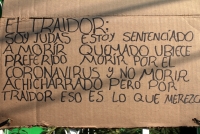 EL TRAIDOR:
SOY JUDAS ESTOY SENTENCIADO
A MORIR QUEMADO UBIECE
PREFERIDO MORIR POR EL
CORONAVIRUS Y NO MORIR
ACHICHARRADO PERO POR
TRAIDOR ESO ES LO QUE MEREZC